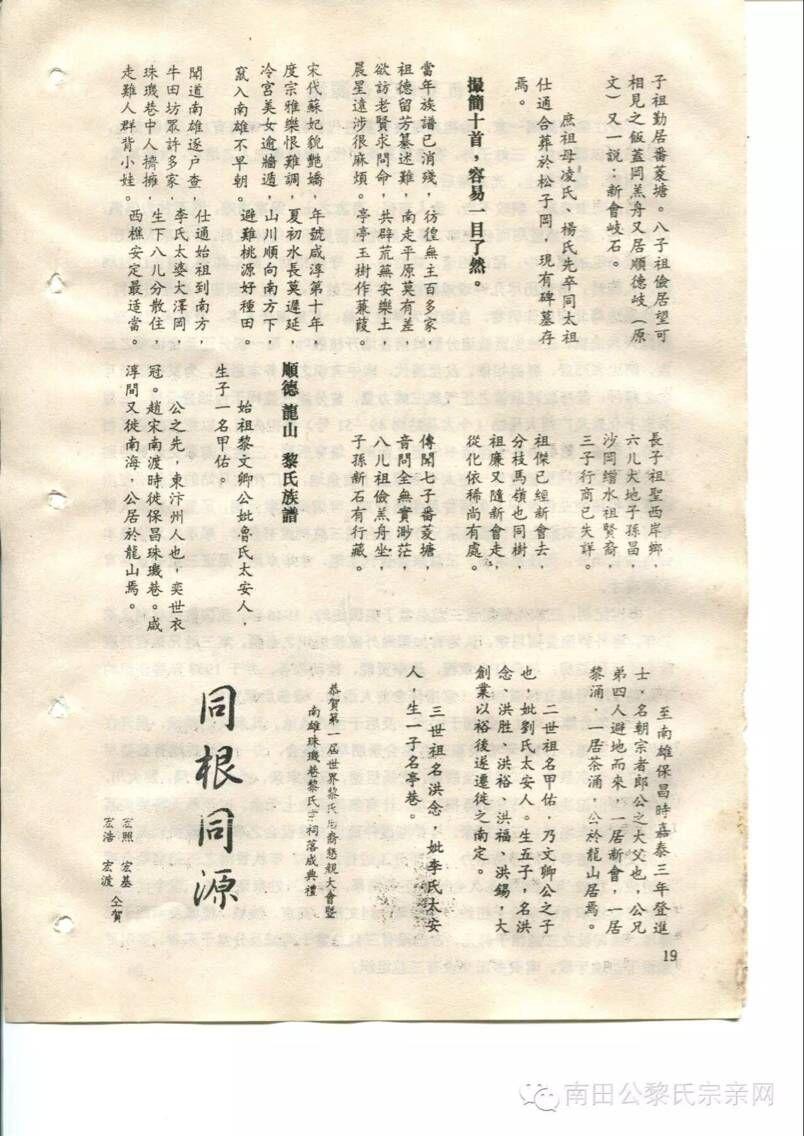 子祖勤居番菱塘。八子祖儉居望可
相見之飯蓋岡羔舟又居順德岐（原
文）又一說：新會岐石。
庶祖母凌氏、楊氏先卒同太祖
仕通合葬於松子岡，現有碑墓存
焉。
撮簡十首，容易一目了然。
當年族譜已消殘，
祖德留芳纂述難，
欲訪老賢求問命，
晨星遠涉很麻煩。
宋代蘇妃貌艷嬌，
度宗雅樂恨難調，
冷宮美女逾牆遁，
竄入南雄不早朝。
聞道南雄逐戶查，
牛田坊眾許多家，
珠璣巷中人擠擁，
走難人群背小娃。
彷徨無主百多家，
南走平原莫有差
共辟荒蕪安樂土
亭亭玉樹作蒹葭。
年號咸淳第十年，
夏初水長莫遲延，
山川順向南方下
避難桃源好種田。
仕通始祖到南方，
李氏太婆大澤岡，
生下八儿分散住，
西樵安定最適當。
長子祖聖西岸鄉，
六儿大地子孫昌，
沙岡繒水祖賢裔，
三子行商已失詳。
祖傑已經新會去，
分枝馬嶺也同樹，
祖廉又隨新會走，
從化依稀尚有處。
傳聞七子番菱塘，
音問全無實渺茫
八儿祖儉羔舟坐，
子孫新石有行藏。
順德 龍山 黎氏族譜
始祖黎文卿公妣魯氏太安人，
生子一名甲佑。
公之先，東汴州人也，奕世衣
冠。趙宋南渡時徙保昌珠璣巷。咸
淳間又徙南海，公居於龍山焉。
至南雄保昌時嘉泰三年登進
士，名朝宗者郎公之大父也，公兄
弟四人避地而來，一居新會，一居
黎涌，一居茶涌，公於龍山居焉。
二世祖名甲佑，乃文卿公之子
也，妣劉氏太安人。生五子，名洪
念、洪胜、洪裕、洪福、洪錫，大
創業以裕後遂遷徙之南定。
三世祖名洪念，妣李氏太安
人，生一子名亭巷。
恭賀第一屆世界黎氏后裔懇親大會暨
南雄珠璣巷黎氏宗祠落成典禮
同根同源
宏照 宏基
宏浩 宏波 仝賀
19
南田公黎氏宗亲网